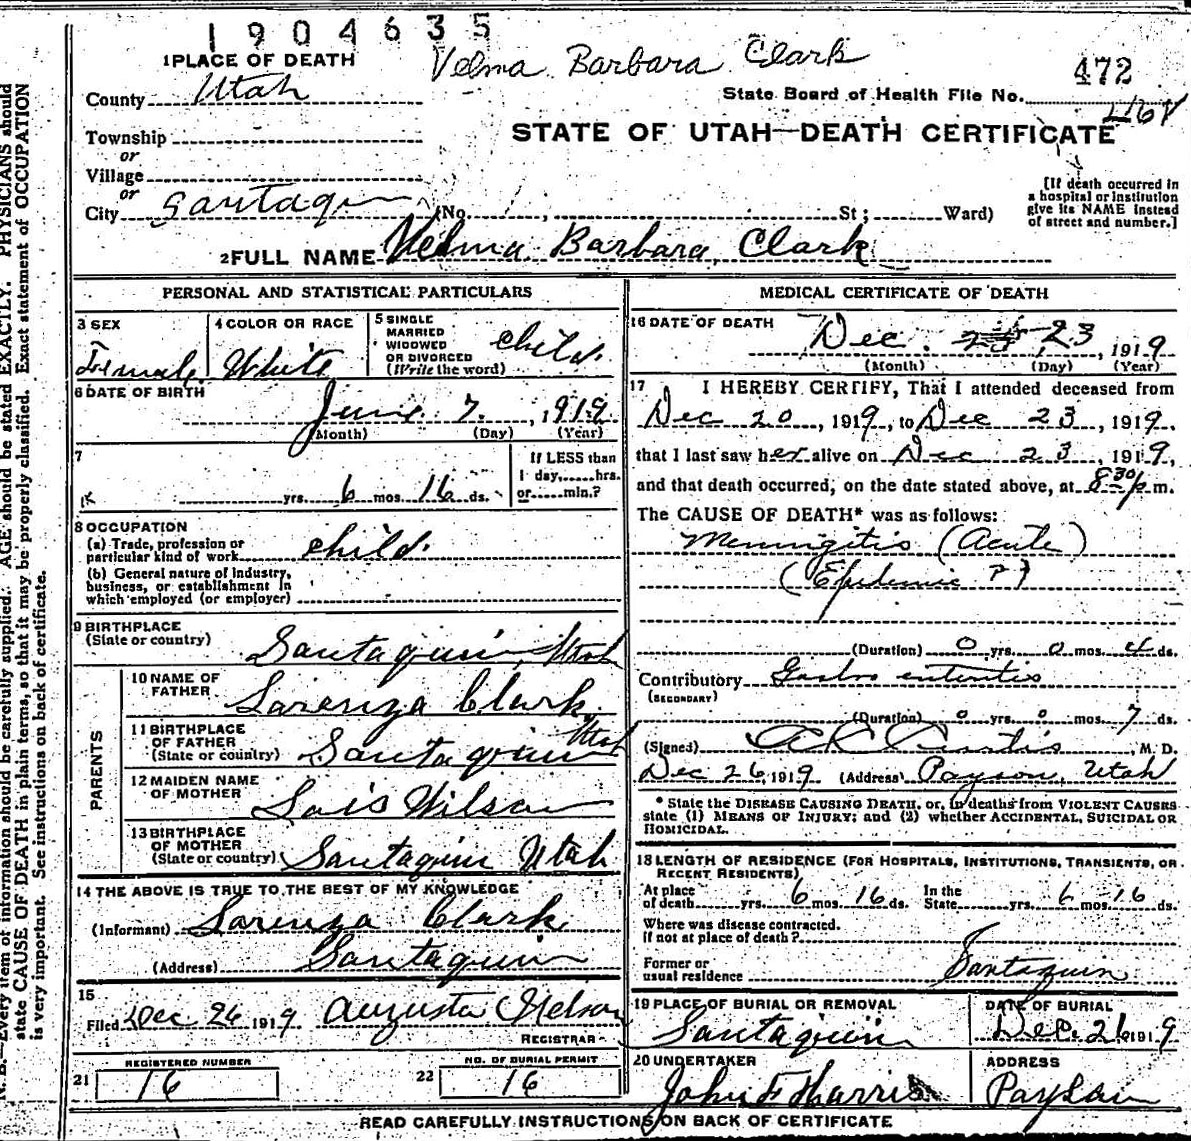 1904635
1 PLACE OF DEATH Velma Barbara Clark 472
County Utah State Board of Health File No.
Township STATE OF UTAH—DEATH CERTIFICATE
or
Village
or
City Santaquin (No. , St; Ward) [If death occurred in a hospital or institution give its NAME instead of street and number.]
2 FULL NAME Velma Barbara Clark
PERSONAL AND STATISTICAL PARTICULARS
3 SEX Female
4 COLOR OR RACE White
5 SINGLE MARRIED WIDOWED OR DIVORCED (Write the word) child
6 DATE OF BIRTH
June 7, 1919
(Month) (Day) (Year)
7 yrs. 6 mos. 16 ds. If LESS than 1 day,......hrs. or......min.?
8 OCCUPATION
(a) Trade, profession or particular kind of work child
(b) General nature of industry, business, or establishment in which employed (or employer)
9 BIRTHPLACE (State or country) Santaquin, Utah
PARENTS
10 NAME OF FATHER Lorenzo Clark
11 BIRTHPLACE OF FATHER (State or country) Santaquin Utah
12 MAIDEN NAME OF MOTHER Lois Wilson
13 BIRTHPLACE OF MOTHER (State or country) Santaquin Utah
14 THE ABOVE IS TRUE TO THE BEST OF MY KNOWLEDGE
(Informant) Lorenzo Clark
(Address) Santaquin
15
Filed Dec 26 1919 Augusta Nelson
REGISTRAR
21 REGISTERED NUMBER 16
22 NO. OF BURIAL PERMIT 16
MEDICAL CERTIFICATE OF DEATH
16 DATE OF DEATH Dec. 23, 1919
(Month) (Day) (Year)
17 I HEREBY CERTIFY, That I attended deceased from
Dec 20, 1919, to Dec 23, 1919
that I last saw her alive on Dec 23, 1919,
and that death occurred, on the date stated above, at 8:30 p m.
The CAUSE OF DEATH* was as follows:
Meningitis (Acute)
(Epidemic ?)
(Duration) 0 yrs. 0 mos. 4 ds.
Contributory Gastro enteritis
(SECONDARY)
(Duration) 0 yrs. 0 mos. 7 ds.
(Signed) A C Curtis, M. D.
Dec 26, 1919 (Address) Payson, Utah
* State the DISEASE CAUSING DEATH, or, in deaths from VIOLENT CAUSES state (1) MEANS OF INJURY; and (2) whether ACCIDENTAL, SUICIDAL OR HOMICIDAL.
18 LENGTH OF RESIDENCE (FOR HOSPITALS, INSTITUTIONS, TRANSIENTS, OR RECENT RESIDENTS)
At place of death yrs. 6 mos. 16 ds. In the State yrs. 6 mos. 16 ds.
Where was disease contracted, if not at place of death?
Former or usual residence Santaquin
19 PLACE OF BURIAL OR REMOVAL Santaquin
DATE OF BURIAL Dec. 26 1919
20 UNDERTAKER John F Harris
ADDRESS Payson
READ CAREFULLY INSTRUCTIONS ON BACK OF CERTIFICATE
N. B.—Every item of information should be carefully supplied. AGE should be stated EXACTLY. PHYSICIANS should
state CAUSE OF DEATH in plain terms, so that it may be properly classified. Exact statement of OCCUPATION
is very important. See instructions on back of certificate.